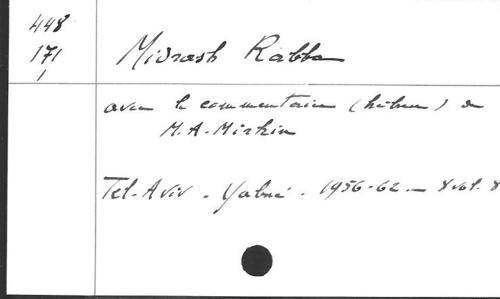 448
171
1
Midrash Rabba
avec le commentaire (hébreu) de
M.A. Mirkin
Tel-Aviv - Yabné - 1956-62 - 8 vol. 8